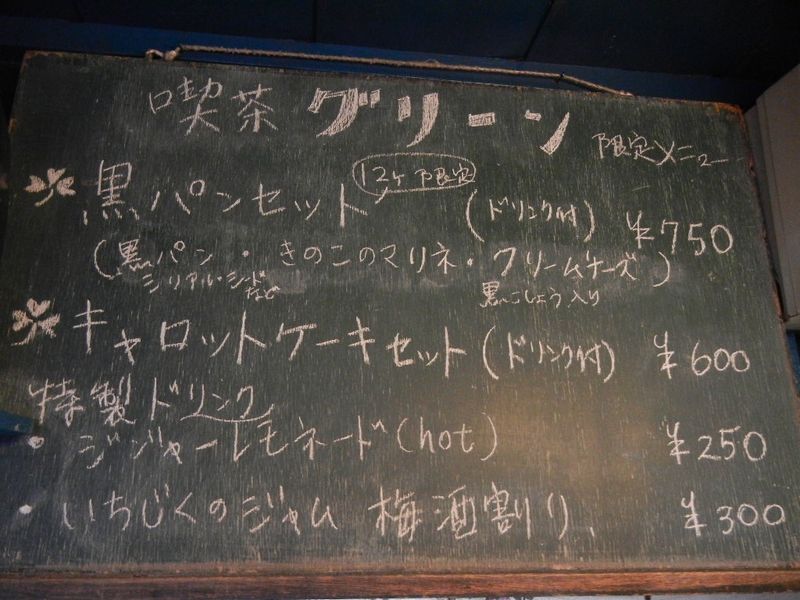 喫茶 グリーン 限定メニュー
黒パンセット 12ヶ限定 (ドリンク付) ¥750
(黒パン・きのこのマリネ・クリームチーズ)
シリアル・シードなど 黒こしょう入り
キャロットケーキセット (ドリンク付) ¥600
特製ドリンク
・ジンジャーレモネード(hot) ¥250
・いちじくのジャム 梅酒割り、 ¥300